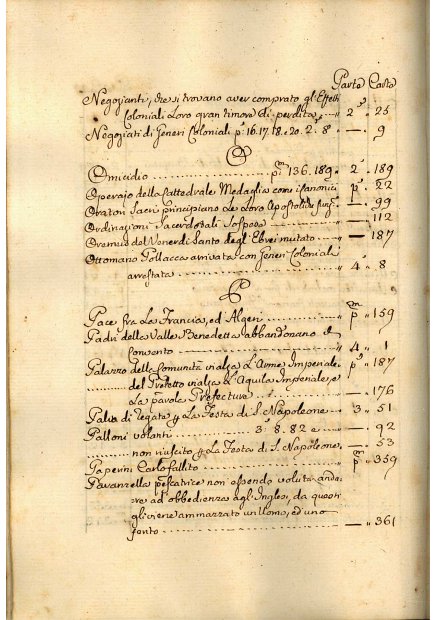 Parte Carte
Negozianti, che si trovano aver comprato gl'Effetti
Coloniali Loro gran timore di perdita 2ª " 25
Negoziati di Generi Coloniali pª 16. 17. 18. e 20. 2. 8ª — " 9
O
Omicidio pª 136. 189 " 2ª " 189
Operajo della Cattedrale Medaglia come i Canonici pª " 22
Oratori Sacri principiano le Loro Apostoliche funzⁱ — " 99
Ordinazioni Sacerdotali Sospese — " 112
Oremus del Venerdì Santo degl'Ebrei mutato — " 187
Ottomano Pollacca arrivata con Generi Coloniali
arrestata 4ª " 8
P
Pace fra La Francia, ed Algeri pª " 159
Padri della Valle Benedetta abbandonano il
Convento 4 " 1
Palazzo della Comunità inalza L'Arme Imperiale pª " 187
del Prefetto inalza L'Aquila Imperiale, e
La parola Prefettura — " 176
Palio di Regate La Festa di S. Napoleone 3 " 51
Palloni volanti 3ª. 8. 82 e — " 92
non riuscito La Festa di S. Napoleone — " 53
Paperini Carlo fallito pª " 359
Paranzella pescatrice non essendo voluta anda-
re ad obbedienza agl'Inglesi, da questi
gli viene ammazzato un Uomo, ed uno
ferito — " 361